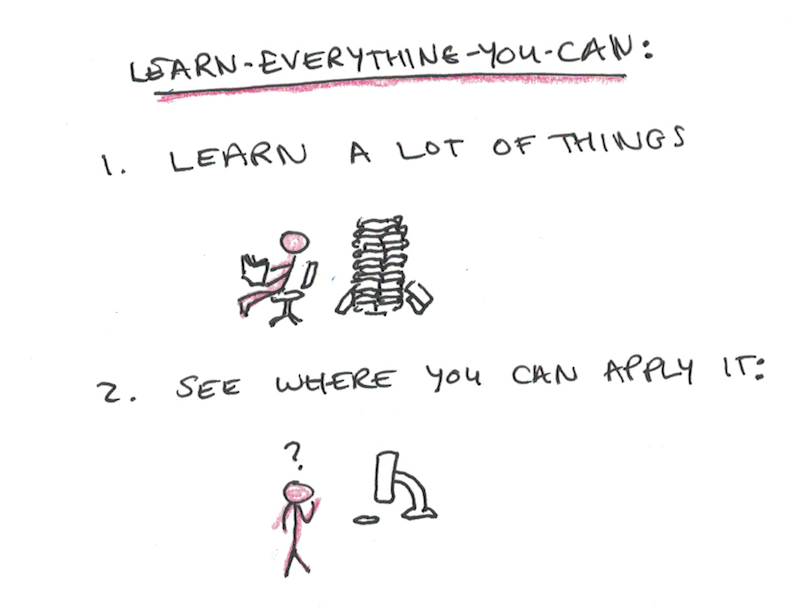 LEARN-EVERYTHING-YOU-CAN:
1. LEARN A LOT OF THINGS
2. SEE WHERE YOU CAN APPLY IT:
?